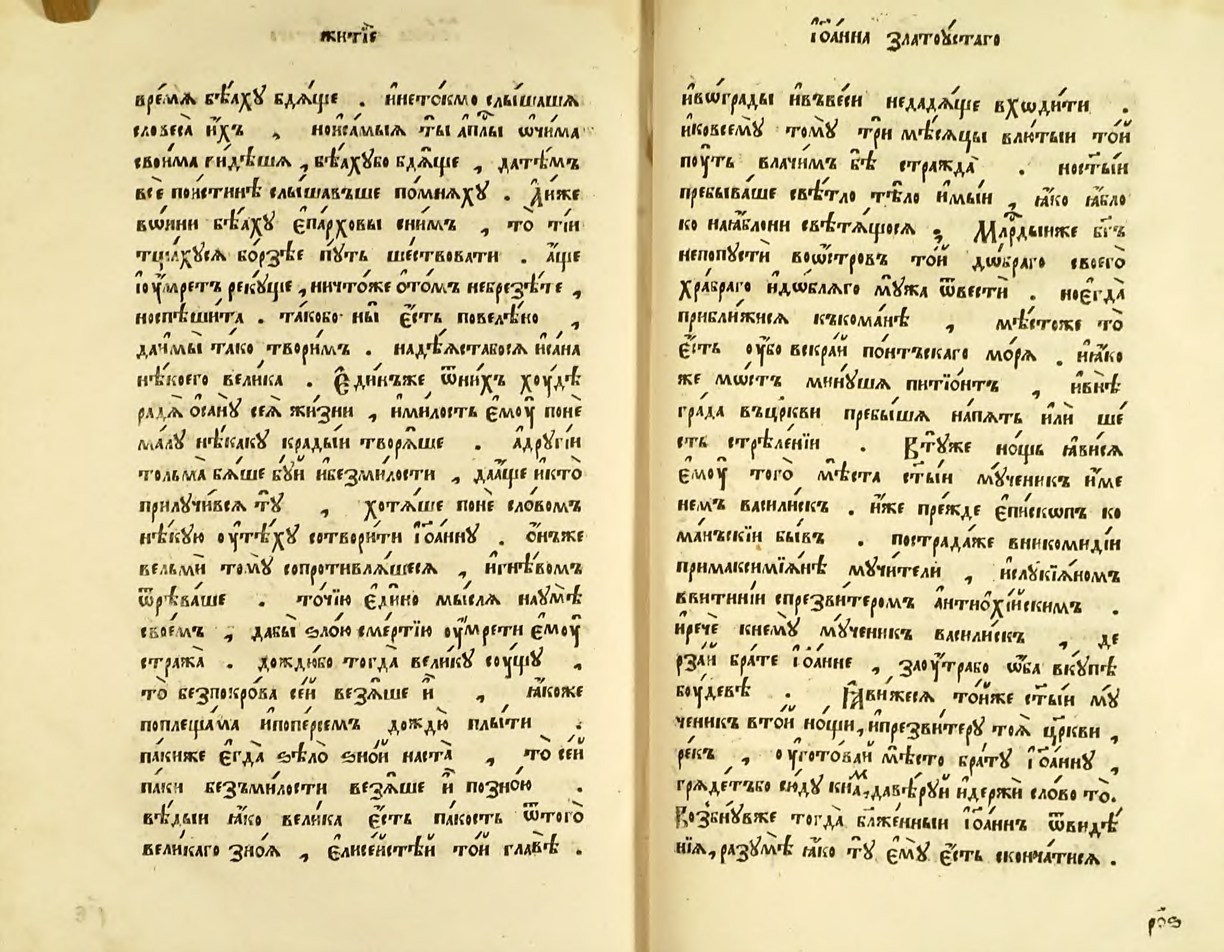 житїе
вре́мѧ бѣ́ахꙋ бдѧ́ще . и҆нето́кмо слы́шашѧ
словеса̀ и҆́хъ , нои҆са́мыѧ ты̀ а҆пⷭ҇лы ѡ҆чи́ма
свои́ма ви́дѣшѧ , бѣ́ахꙋбо бдѧ́ще , датѣ́мъ
всѐ пои́стинѣ слы́шавъше по́мнѧхꙋ . Ди́же
во́ини бѣ́ахꙋ є҆па́рховы сни́мъ , то̀ ті́и
тща́хꙋсѧ бо́рзѣе пꙋ́ть ше́ствовати . а҆́ще
іоу҆́мретъ рекꙋ́ще , ничто́же ѻ҆то́мъ небрезѣ́те ,
носпѣши́та . та́кобо ны̀ є҆́сть повелѣ́но ,
да́имы та́ко твори́мъ . надѣ́ѧстабосѧ и҆са́на
нѣ́коего вели́ка . Є҆ди́нъже ѿни́хъ хоу́дѣ
радѧ̀ ѻ҆са́нꙋ сеѧ̀ жи́зни , и҆ми́лость є҆моу̀ понѐ
ма́лꙋ нѣ́какꙋ кра́дыи творѧ́ше . а҆дрꙋгі́и
тольма̀ бѧ́ше бꙋ́й и҆безми́лости , даа҆́ще и҆кто̀
прилꙋчи́всѧ тꙋ̀ , хотѧ́ше понѐ сло́вомъ
нѣ́кꙋю оу҆тѣ́хꙋ сотвори́ти і҆ѡа́ннꙋ . ѻ҆́нъже
вельмѝ томꙋ̀ сопротивлѧ́шесѧ , и҆гнѣ́вомъ
ѿрѣва́ше . то́чїю є҆ди́но мы́слѧ наꙋмѣ̀
свое́мъ , дабы̀ ѕло́ю сме́ртїю оу҆мре́ти є҆моу̀
стража̀ . дождю́бо тогда̀ вели́кꙋ соу́щꙋ ,
то̀ безпокро́ва се́й везѧ́ше и҆̀ , ꙗ҆́коже
поплеща́ма и҆попе́рсемъ дождю̀ плы́ти .
па́киже є҆гда̀ ѕѣло̀ ѕно́й наста̀ , то̀ се́й
па́ки безъми́лости везѧ́ше и҆̀ позно́ю .
вѣ́дыи ꙗ҆́ко вели́ка є҆́сть па́кость ѿтого̀
вели́каго зно́ѧ , є҆лисе́истѣй то́й главѣ̀ .
і҆ѡа́нна златоу́стаго
и҆вогра́ды и҆въве́си недадѧ́ще вхѡди́ти .
и҆ковсемꙋ̀ томꙋ̀ трѝ мѣ́сѧцы влю́тыи то́й
поу́ть влачи́мъ бѣ̀ стражда̀ . ност҃ы́и
пребыва́ше свѣ́тло тѣ́ло и҆мы́и , ꙗ҆́ко ꙗ҆́бло
ко наꙗ҆́блони свѣтѧ́щосѧ . Млⷭ҇рдыиже бг҃ъ
непопꙋстѝ воѡ҆́стровъ то́й до́браго своего̀
хра́браго и҆до́блѧго мꙋ́жа ѿвестѝ . ное҆гда̀
прибли́жисѧ къкома́нѣ , мѣ́стоже то̀
є҆́сть оу҆́бо вскра́й по́нтъскаго мо́рѧ . и҆ꙗ҆́ко
же мо́стъ минꙋ́шѧ питїо́нтъ , и҆внѣ̀
гра́да въцр҃кви пребы́шѧ на́пѧть и҆лѝ ше́
сть стрѣле́нїи . Втꙋ́же но́щь ꙗ҆ви́сѧ
є҆моу̀ того̀ мѣ́ста ст҃ы́и мꙋ́ченикъ и҆́ме
немъ васили́скъ . и҆́же пре́жде є҆пи́скопъ ко
ма́нъскїи бы́въ . пострада́же вникомиди́и
примаксимїѧ́нѣ мꙋчи́тели , и҆слꙋкїѧ́номъ
ввитині́и спрезви́теромъ а҆нтиохі́йскимъ .
и҆речѐ кнемꙋ̀ мꙋ́ченикъ васили́скъ , де
рза́й бра́те і҆ѡа́нне , заоу́трабо ѡ҆́ба вкꙋ́пѣ
боу́девѣ . Ꙗ҆ви́жесѧ то́йже ст҃ы́и мꙋ́
ченикъ вто́й но́щи, и҆презви́терꙋ тоѧ̀ цр҃кви ,
ре́къ , оу҆гото́вай мѣ́сто бра́тꙋ і҆ѡа́ннꙋ ,
грѧде́тъбо сю́дꙋ кна́мъ, давѣ́рꙋй и҆держѝ сло́во то̀.
Возбнꙋ́вже тогда̀ блаже́нныи і҆ѡа́ннъ ѿвидѣ́
нїѧ, разꙋмѣ̀ ꙗ҆́ко тꙋ̀ є҆мꙋ̀ є҆́сть сконча́тисѧ .
ро҃ѕ